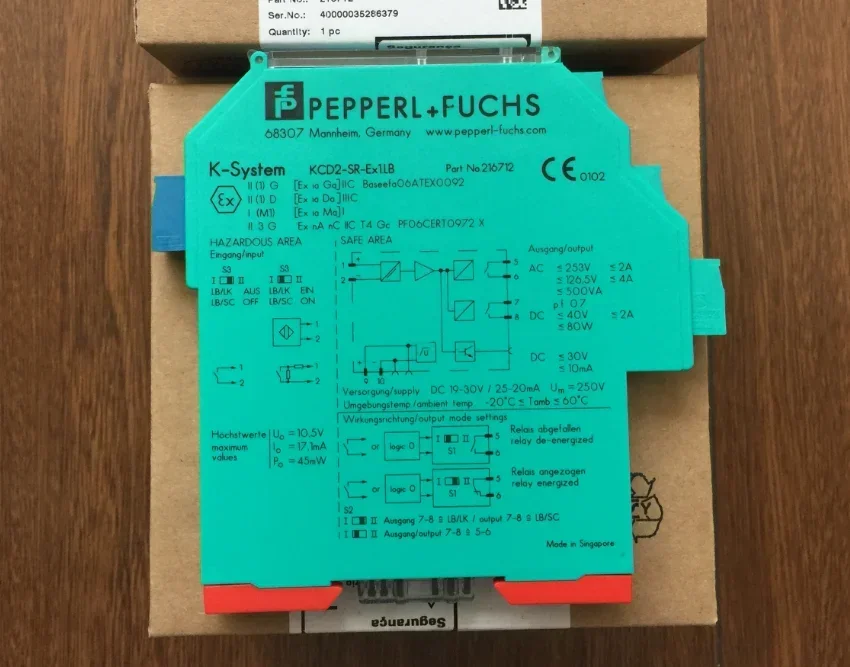 Ser.No.: 40000035286379
Quantity: 1 pc
Segurança
PEPPERL+FUCHS
68307 Mannheim, Germany www.pepperl-fuchs.com
K-System KCD2-SR-Ex1.LB Part No 216712 CE 0102
II (1) G [Ex ia Ga]IIC Baseefa06ATEX0092
II (1) D [Ex ia Da]IIIC
I (M1) [Ex ia Ma]I
II 3 G Ex nA nC IIC T4 Gc PF06CERT0972 X
Ex
HAZARDOUS AREA
Eingang/input
S3 S3
I II I II
LB/LK AUS LB/LK EIN
LB/SC OFF LB/SC ON
1
2
1
2
1
2
SAFE AREA
1 +
2 -
5
6
7
8
+ -
9 10
Ausgang/output
AC ≤ 253V ≤ 2A
≤ 126,5V ≤ 4A
≤ 500VA
pf 0.7
DC ≤ 40V ≤ 2A
≤ 80W
DC ≤ 30V
≤ 10mA
Versorgung/supply DC 19-30V / 25-20mA Um = 250V
Umgebungstemp/ambient temp. -20°C ≤ Tamb ≤ 60°C
Höchstwerte
maximum
values
Uo = 10,5V
Io = 17,1mA
Po = 45mW
Wirkungsrichtung/output mode settings
or logic 0 I II S1 5 6
Relais abgefallen
relay de-energized
or logic 0 I II S1 5 6
Relais angezogen
relay energized
S2
I II Ausgang 7-8 ≙ LB/LK / output 7-8 ≙ LB/SC
I II Ausgang/output 7-8 ≙ 5-6
Made in Singapore
Segurança